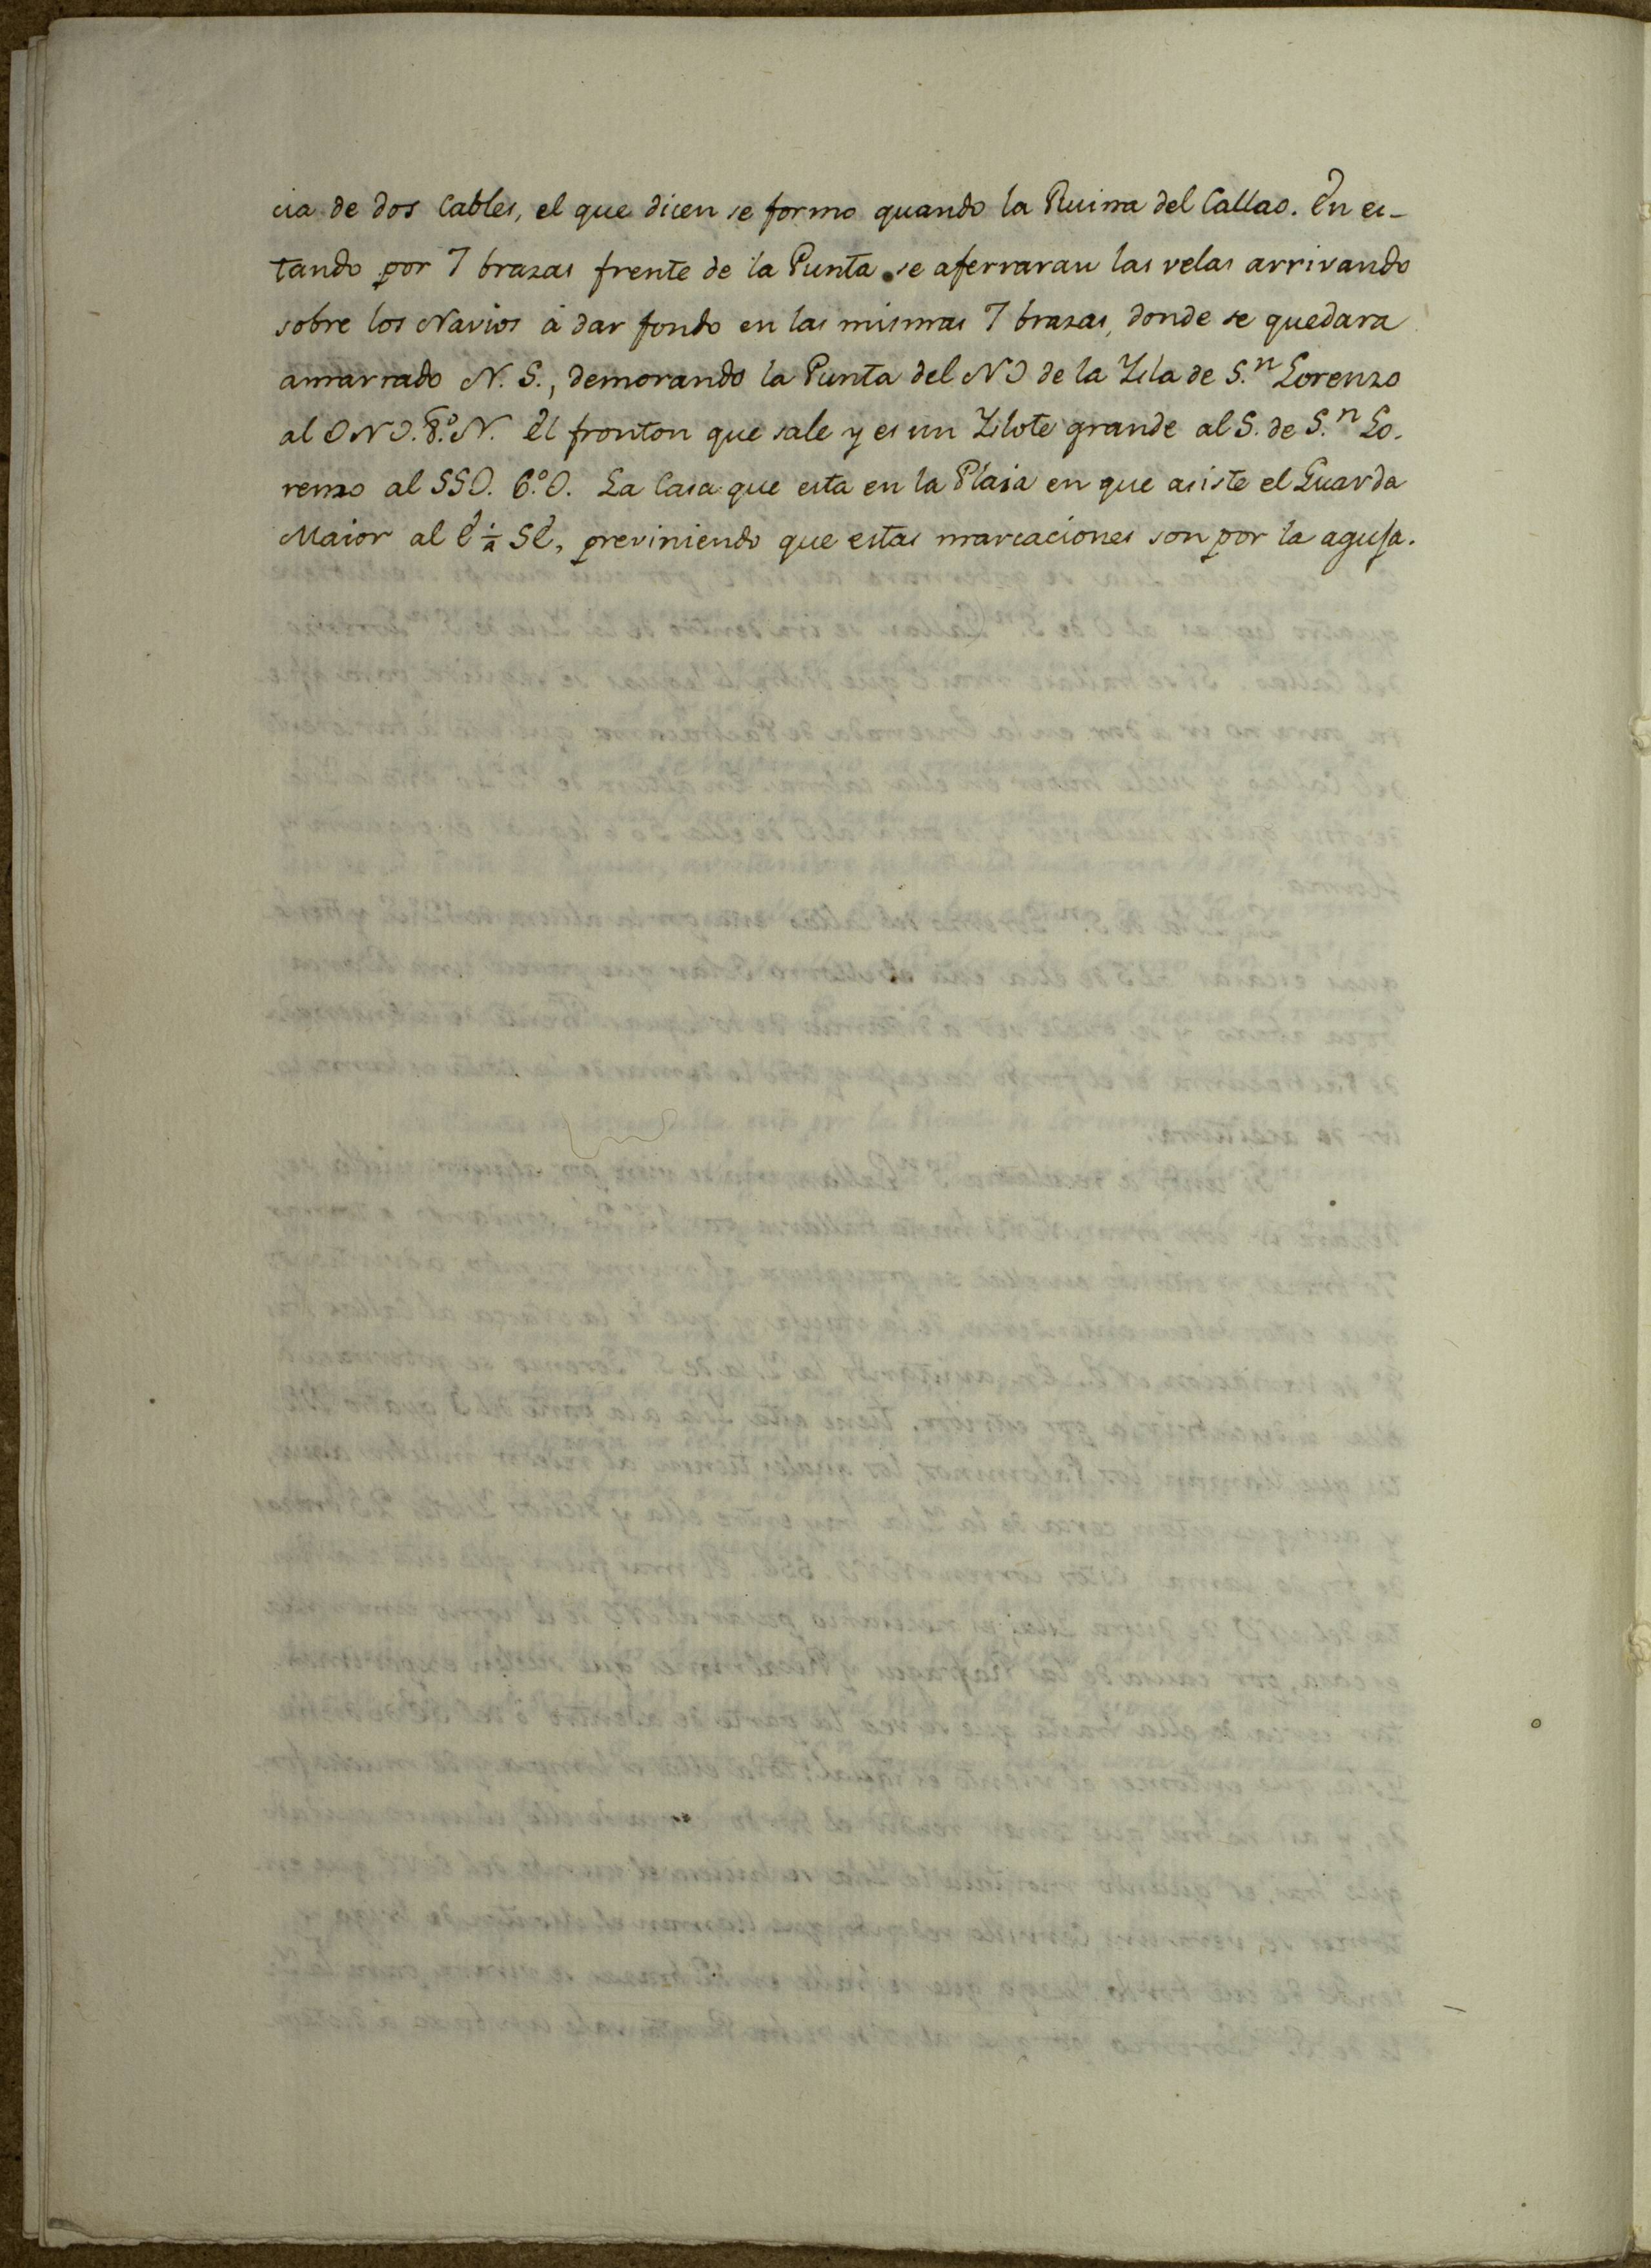 cia de dos Cables, el que dicen se formo quando la Ruina del Callao. En es-
tando por 7 brazas frente de la Punta se aferraran las velas arrivando
sobre los Navios á dar fondo en las mismas 7 brazas, donde se quedara
amarrado N. S., demorando la Punta del NO de la Ysla de S.n Lorenzo
al ONO. 8.º N. El fronton que sale y es un Yslote grande al S. de S.n Lo-
renzo al SSO. 6.º O. La Casa que esta en la Plaia en que asiste el Guarda
Maior al E ¼ SE, previniendo que estas marcaciones son por la aguja.